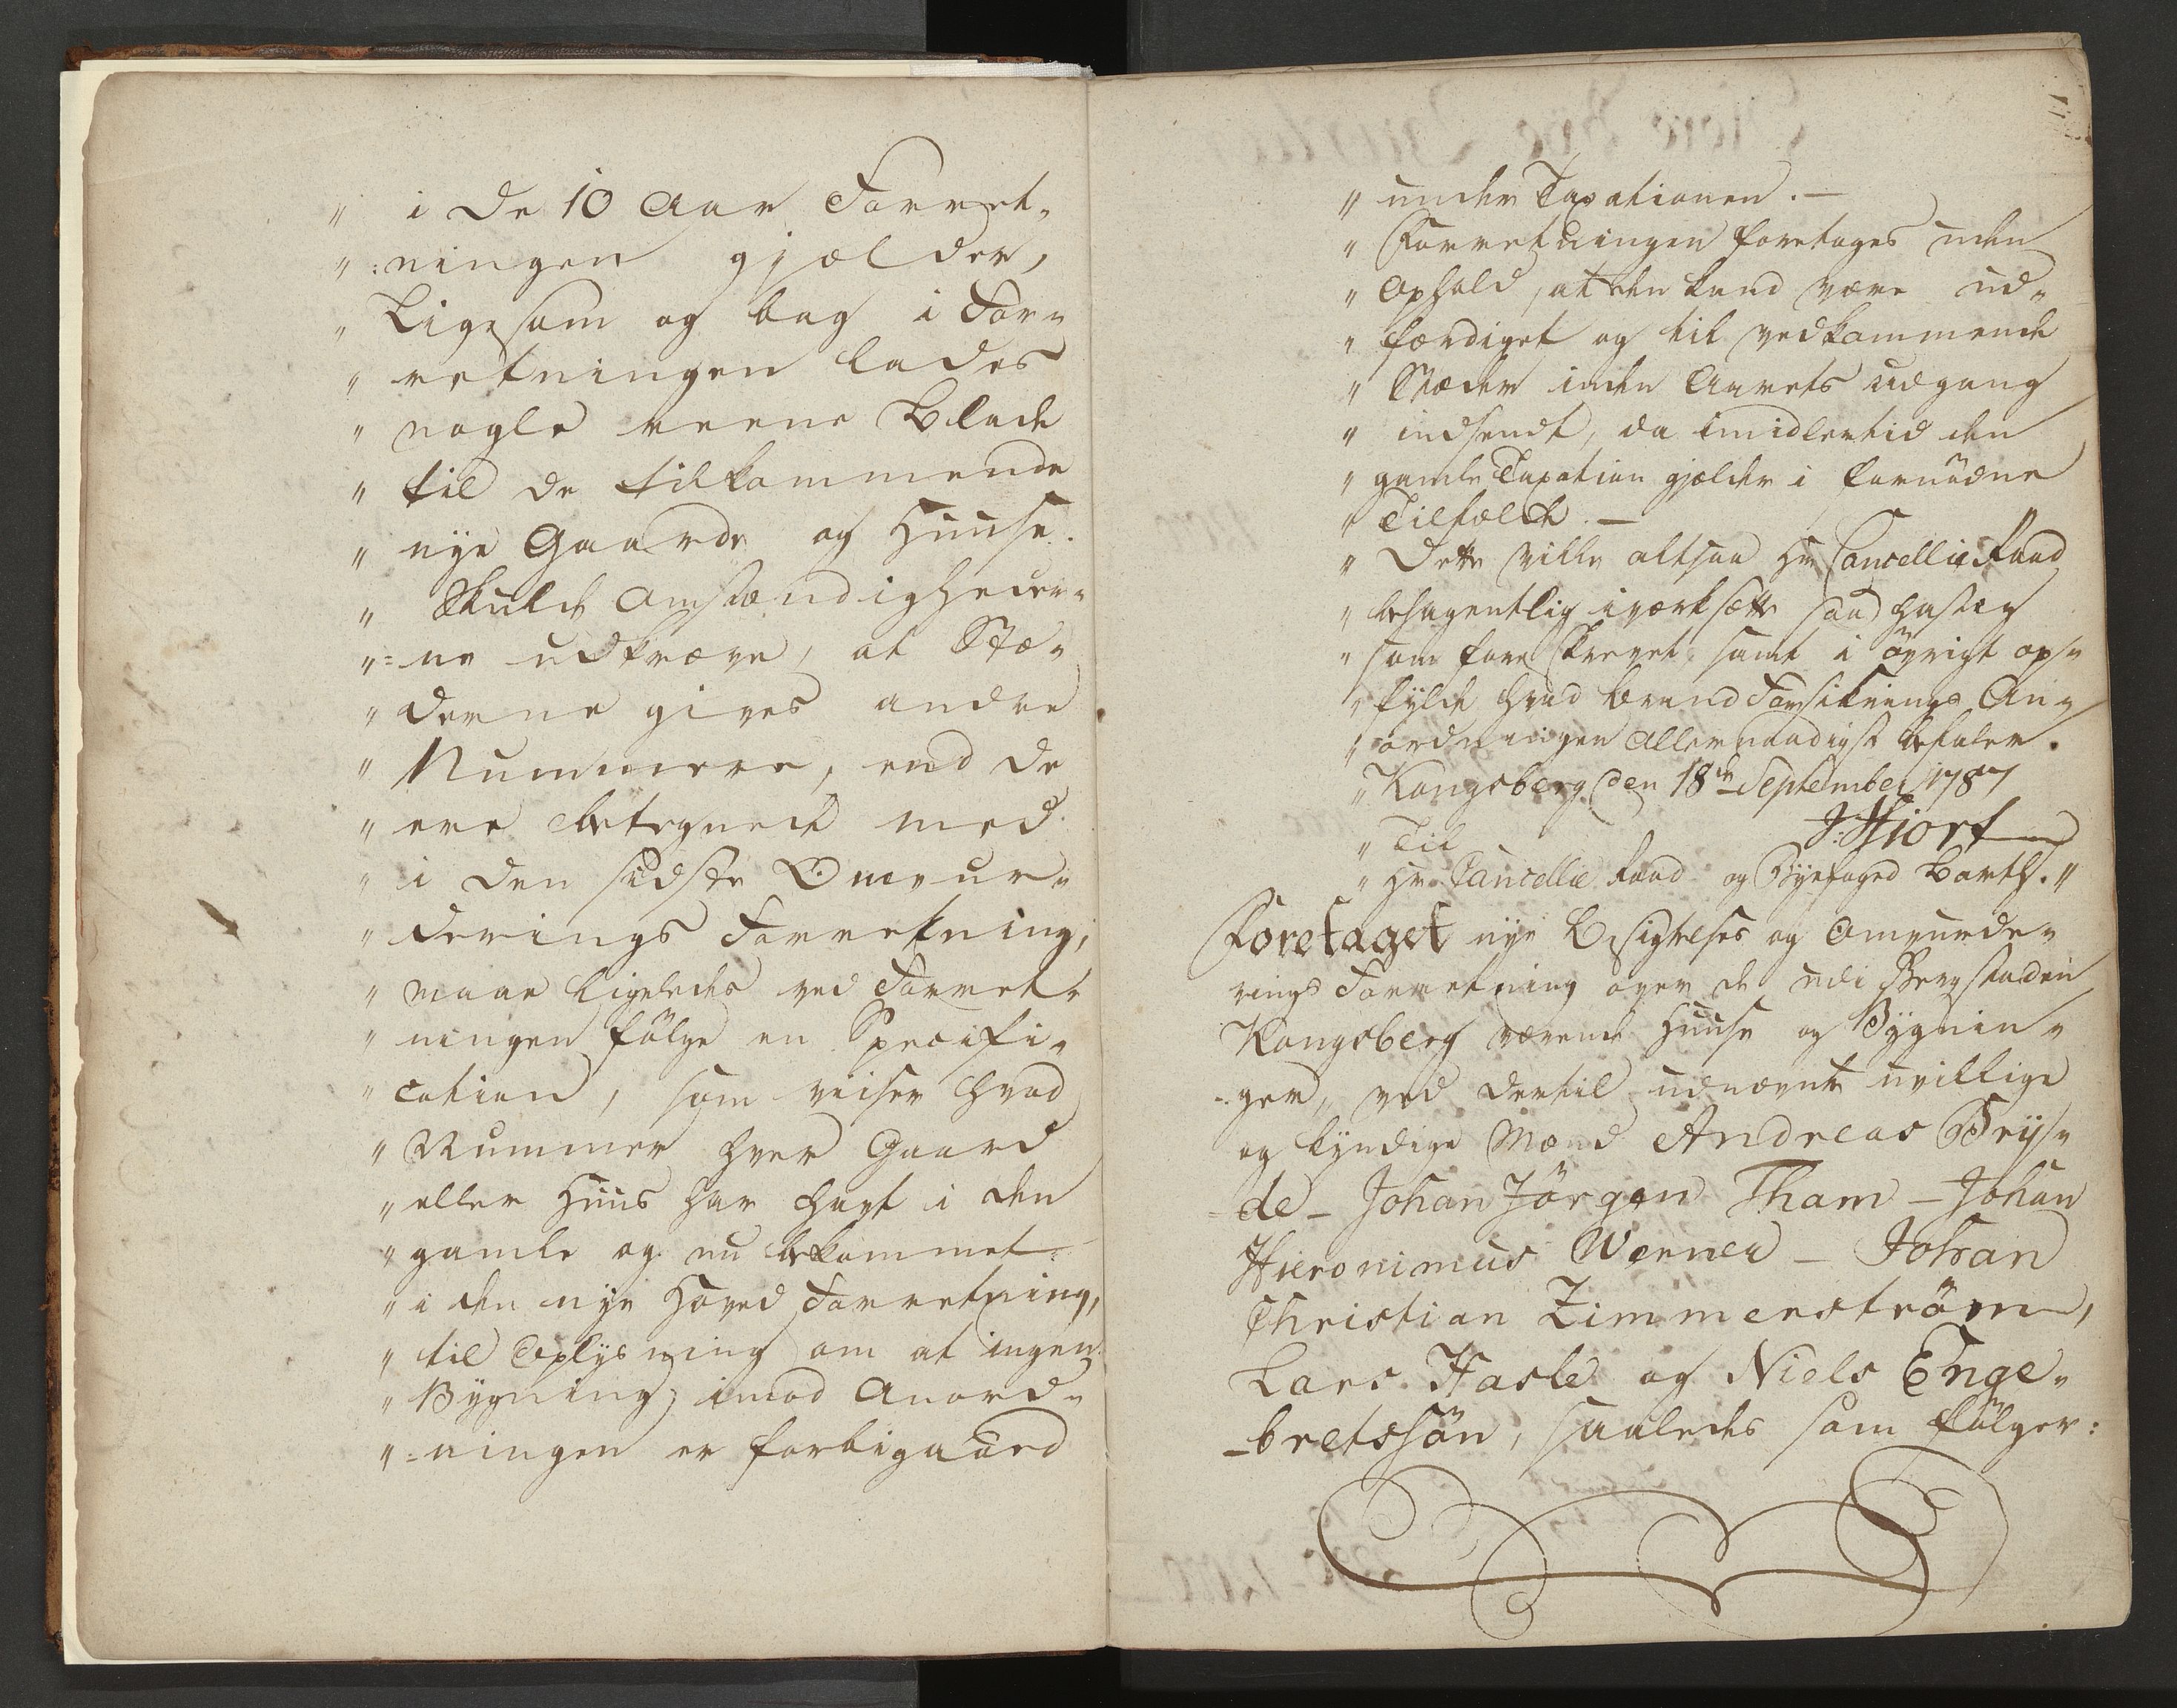 " i De 10 Aar Forret„
" :ningen gjælder,
" Ligesom og bag i For„
" retningen lades
" nogle reene Blade
" til de tilkommende
" nye Gaarde og Huuse.
" Skulde Omstændigheder„
" =ne udkræve, at Stæ„
" derne gives andre
" Nummere, end de
" ere betegnede med
" i den sidste Omvur„
" derings Forretning,
" maae ligeledes ved Forret„
" ningen følge en Specifi„
" cation, som viiser hvad
" Nummer hver Gaard
" eller Huus har havt i den
" gamle og nu bekommet
" i den nye Hoved Forretning,
" til Oplysning om at ingen
" Bygning imod Anord„
" =ningen er forbigaaed
" under Taxationen. —
" Forretningen foretages uden
" Ophold, at den kand være ud„
" færdiget og til vedkommende
" Stæder inden Aarets udgang
" indsendt, da imidlertid den
" gamle Taxation gjælder i fornødne
" Tilfælde. —
" Dette ville altsaa Hr Cancellie Raad
" behagentlig iværksætte saa hastig
" som foreskrevet samt i øvrigt op„
" fylde hvad Brand Forsikrings An„
" ordningen Allernaadigst befaler.
" Kongsberg den 18de September 1787
J: Hiort
" Til
" Hr. Cancellie Raad og Byefoged Barth. "
Foretaget nye Besigtelses og Omvurde„
rings Forretning over de udi Bergstaden
Kongsberg værende Huuse og Bygnin„
ger, ved dertil udnævnte uvillige
og kyndige Mænd Andreas Bry„
de – Johan Jörgen Tham – Johan
Hieronimus Werner – Johan
Christian Zimmerström,
Lars Hasle og Niels Enge„
-bretssön, saaledes som følger: